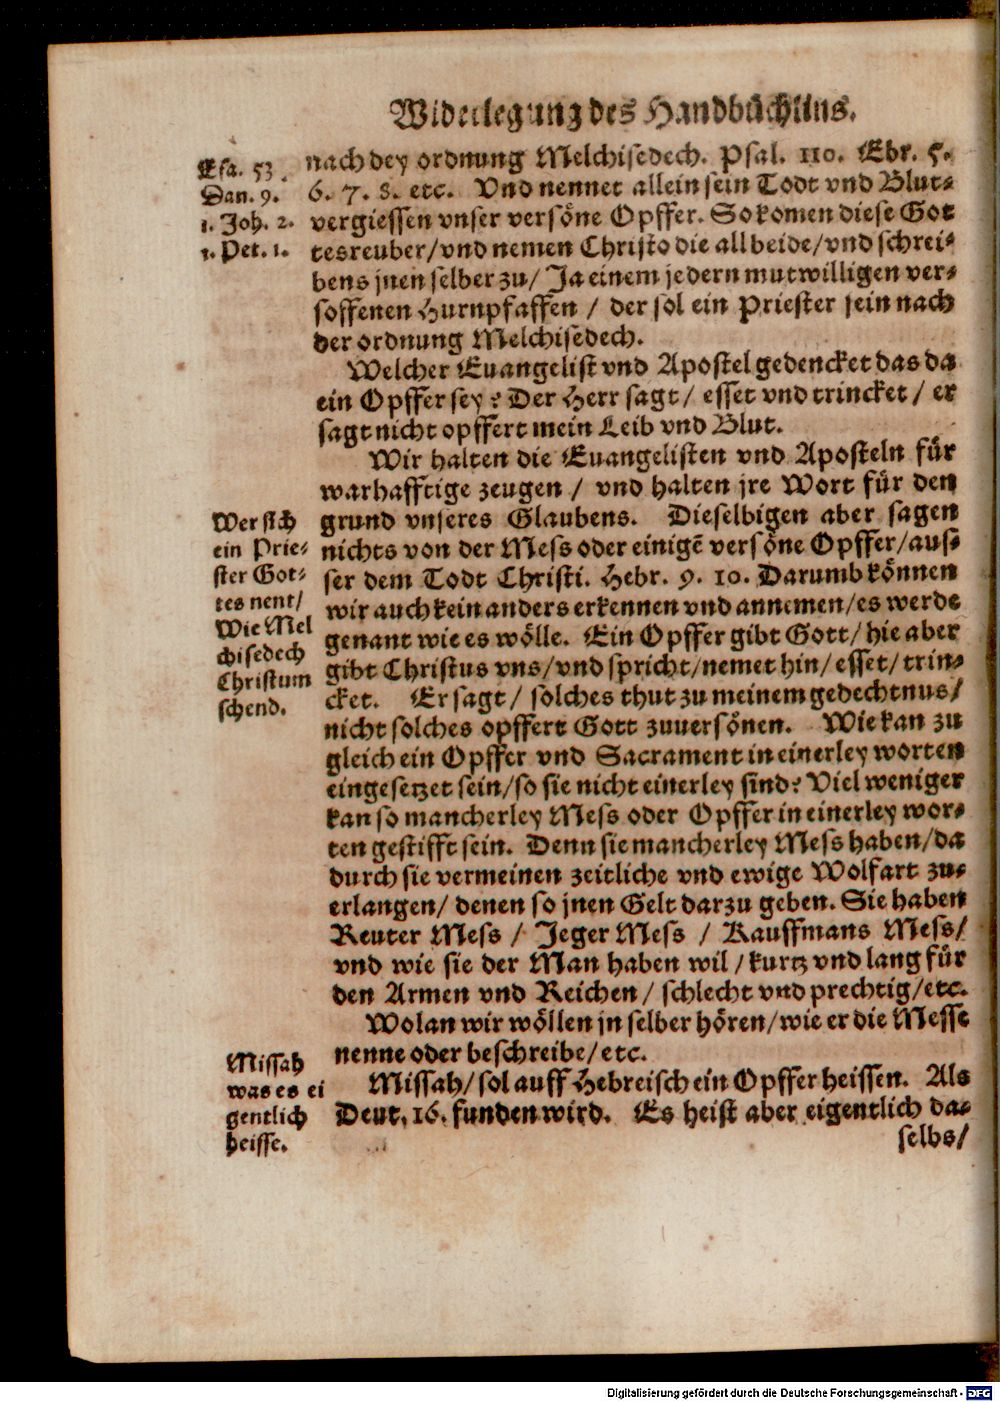 Widerlegung des Handbüchlins.
Esa. 53
Dan. 9.
1. Joh. 2.
1. Pet. 1.
nach dey ordnung Melchisedech. Psal. 110. Ebr. 5.
6. 7. 8. etc. Vnd nennet allein sein Todt vnd Blut-
vergiessen vnser versöne Opffer. So komen diese Got
tesreuber/vnd nemen Christo die all beide/vnd schrei-
bens jnen selber zu/ Ja einem jedern mutwilligen ver-
soffenen Hurnpfaffen / der sol ein Priester sein nach
der ordnung Melchisedech.
Welcher Euangelist vnd Apostel gedencket das da
ein Opffer sey? Der Herr sagt/ esset vnd trincket / er
sagt nicht opffert mein Leib vnd Blut.
Wir halten die Euangelisten vnd Aposteln für
warhafftige zeugen / vnd halten jre Wort für den
Wer sich
ein Prie-
ster Got-
tes nent/
Wie Mel
chisedech
Christum
schend.
grund vnseres Glaubens. Dieselbigen aber sagen
nichts von der Mess oder einigē versöne Opffer/aus-
ser dem Todt Christi. Hebr. 9. 10. Darumb können
wir auch kein anders erkennen vnd annemen/es werde
genant wie es wölle. Ein Opffer gibt Gott/ hie aber
gibt Christus vns/vnd spricht/nemet hin/ esset/ trin-
cket. Er sagt / solches thut zu meinem gedechtnus/
nicht solches opffert Gott zuuersönen. Wie kan zu
gleich ein Opffer vnd Sacrament in einerley worten
eingesetzet sein/so sie nicht einerley sind? Viel weniger
kan so mancherley Mess oder Opffer in einerley wor-
ten gestifft sein. Denn sie mancherley Mess haben/da
durch sie vermeinen zeitliche vnd ewige Wolfart zu-
erlangen/ denen so jnen Gelt darzu geben. Sie haben
Reuter Mess / Jeger Mess / Kauffmans Mess/
vnd wie sie der Man haben wil /kurtz vnd lang für
den Armen vnd Reichen/ schlecht vnd prechtig/etc.
Wolan wir wöllen jn selber hören/wie er die Messe
nenne oder beschreibe/etc.
Missah
was es ei
gentlich
heisse.
Missah/ sol auff Hebreisch ein Opffer heissen. Als
Deut. 16. funden wird. Es heist aber eigentlich da-
selbs/
Digitalisierung gefördert durch die Deutsche Forschungsgemeinschaft - DFG